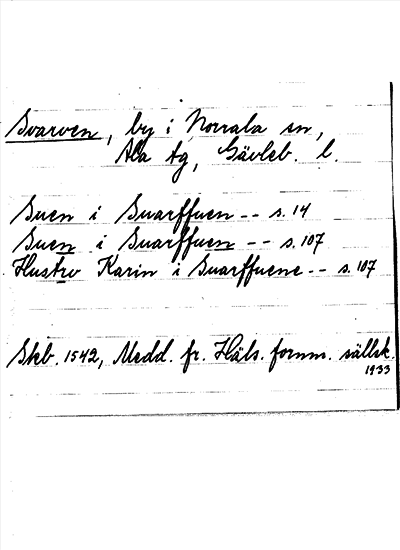 Svarven, by i Norrala sn,
Ala tg, Gävleb. l.
Suen i Suarffuen -- s. 14
Suen i Suarffuen -- s. 107
Hustro Karin i Suarffuene -- s. 107
Skb. 1542, Medd. fr. Häls. fornm. sällsk.
1933